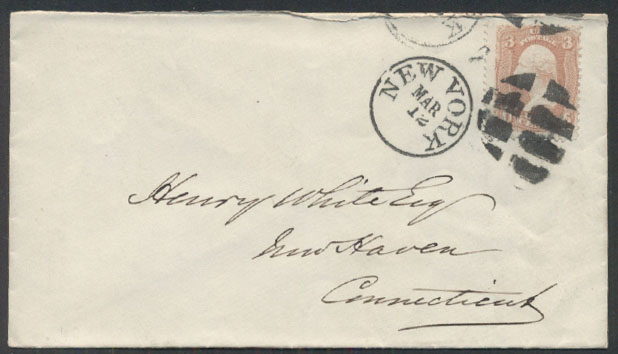 NEW YORK
MAR
12
3 3
U.S.
POSTAGE
Henry White Esq
New Haven
Connecticut